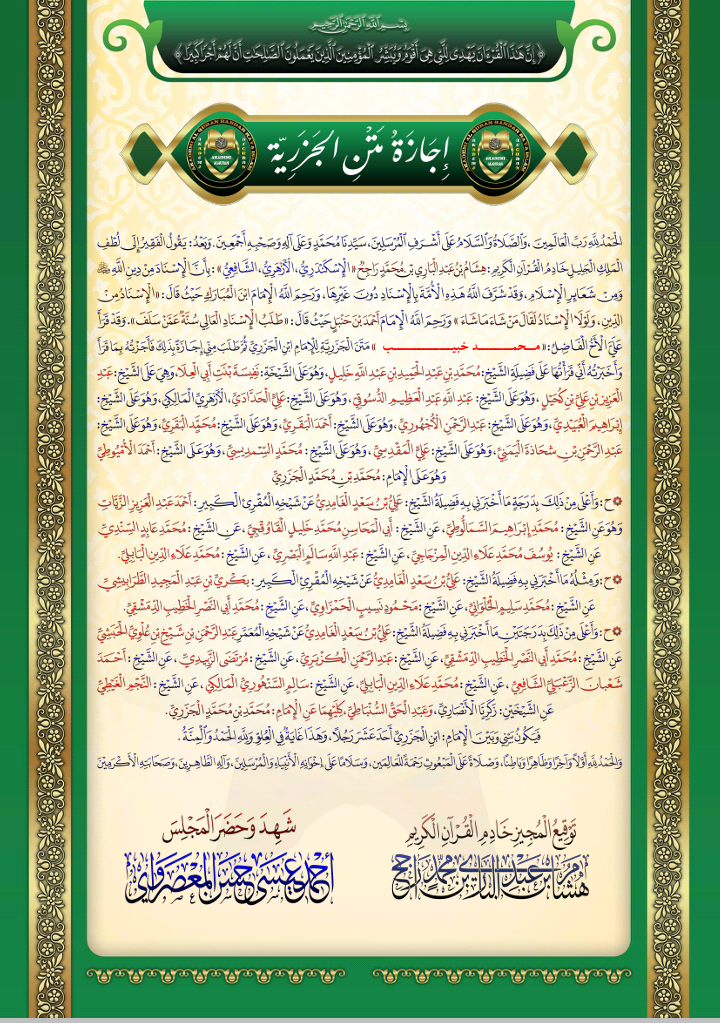 بِسْمِ اللَّهِ الرَّحْمَٰنِ الرَّحِيمِ
﴿ إِنَّ هَٰذَا الْقُرْءَانَ يَهْدِي لِلَّتِي هِيَ أَقْوَمُ وَيُبَشِّرُ الْمُؤْمِنِينَ الَّذِينَ يَعْمَلُونَ الصَّالِحَاتِ أَنَّ لَهُمْ أَجْرًا كَبِيرًا ﴾
إِجَازَةُ مَتْنِ الجَزَرِيَّة
الحَمْدُ لِلَّهِ رَبِّ الْعَالَمِينَ ، وَالصَّلَاةُ وَالسَّلَامُ عَلَى أَشْرَفِ الْمُرْسَلِينَ، سَيِّدِنَا مُحَمَّدٍ وَعَلَى آلِهِ وَصَحْبِهِ أَجْمَعِينَ. وَبَعْدُ: يَقُولُ الْفَقِيرُ إِلَى لُطْفِ
الْمَلِكِ الْجَلِيلِ خَادِمُ الْقُرْآنِ الْكَرِيمِ: هِشَامُ بْنُ عَبْدِ الْبَارِي بْنِ مُحَمَّدٍ رَاجِحٌ « الْإِسْكَنْدَرِيُّ، الْأَزْهَرِيُّ، الشَّافِعِيُّ » : بِأَنَّ الْإِسْنَادَ مِنْ دِينِ اللَّهِ ﷻ
وَمِنْ شَعَايِرِ الْإِسْلَامِ، وَقَدْ شَرَّفَ اللَّهُ هَذِهِ الْأُمَّةَ بِالْإِسْنَادِ دُونَ غَيْرِهَا، وَرَحِمَ اللَّهُ الْإِمَامَ ابْنَ الْمُبَارَكِ حَيْثُ قَالَ: « الْإِسْنَادُ مِنَ
الدِّينِ، وَلَوْلَا الْإِسْنَادُ لَقَالَ مَنْ شَاءَ مَا شَاءَ » وَرَحِمَ اللَّهُ الْإِمَامَ أَحْمَدَ بْنَ حَنْبَلٍ حَيْثُ قَالَ: « طَلَبُ الْإِسْنَادِ الْعَالِي سُنَّةٌ عَمَّنْ سَلَفَ ». وَقَدْ قَرَأَ
عَلَيَّ الْأَخُ الْفَاضِلُ: « محمد خبيب » مَتْنَ الْجَزَرِيَّةِ لِلْإِمَامِ ابْنِ الْجَزَرِيِّ ثُمَّ طَلَبَ مِنِّي إِجَازَةً بِذَلِكَ فَأَجَزْتُهُ بِمَا قَرَأَ
وَأَخْبَرْتُهُ أَنِّي قَرَأْتُهَا عَلَى فَضِيلَةِ الشَّيْخِ: مُحَمَّدِ بْنِ عَبْدِ الْحَمِيدِ بْنِ عَبْدِ اللَّهِ خَلِيلٍ، وَهُوَ عَلَى الشَّيْخَةِ: نَفِيسَةَ بِنْتِ أَبِي الْعِلَا، وَهِيَ عَلَى الشَّيْخِ: عَبْدِ
الْعَزِيزِ بْنِ عَلِيٍّ بْنِ كُحَيْلٍ ، وَهُوَ عَلَى الشَّيْخِ: عَبْدِ اللَّهِ عَبْدِ الْعَظِيمِ الدُّسُوقِيِّ، وَهُوَ عَلَى الشَّيْخِ: عَلِيٍّ الْحَدَّادِيِّ، الْأَزْهَرِيِّ الْمَالِكِيِّ، وَهُوَ عَلَى الشَّيْخِ:
إِبْرَاهِيمَ الْعُبَيْدِيِّ، وَهُوَ عَلَى الشَّيْخِ: عَبْدِ الرَّحْمَنِ الْأُجْهُورِيِّ، وَهُوَ عَلَى الشَّيْخِ: أَحْمَدَ الْبَقَرِيِّ، وَهُوَ عَلَى الشَّيْخِ: مُحَمَّدٍ الْبَقَرِيِّ، وَهُوَ عَلَى الشَّيْخِ:
عَبْدِ الرَّحْمَنِ بْنِ شِحَاذَةَ الْيَمَنِيِّ، وَهُوَ عَلَى الشَّيْخِ: عَلِيٍّ الْمَقْدِسِيِّ، وَهُوَ عَلَى الشَّيْخِ: مُحَمَّدٍ السِّمَدِيسِيِّ، وَهُوَ عَلَى الشَّيْخِ: أَحْمَدَ الْأُمْيُوطِيِّ
وَهُوَ عَلَى الْإِمَامِ: مُحَمَّدِ بْنِ مُحَمَّدٍ الْجَزَرِيِّ
ح: وَأَعْلَى مِنْ ذَلِكَ بِدَرَجَةٍ مَا أَخْبَرَنِي بِهِ فَضِيلَةُ الشَّيْخِ: عَلِيُّ بْنُ سَعْدٍ الْغَامِدِيُّ عَنْ شَيْخِهِ الْمُقْرِئِ الْكَبِيرِ: أَحْمَدَ عَبْدِ الْعَزِيزِ الزَّيَّاتِ
وَهُوَ عَنِ الشَّيْخِ: مُحَمَّدِ إِبْرَاهِيمَ السَّمَالُوطِيِّ، عَنِ الشَّيْخِ: أَبِي الْمَحَاسِنِ مُحَمَّدِ خَلِيلٍ الْقَاوُقْجِيِّ، عَنِ الشَّيْخِ: مُحَمَّدِ عَابِدٍ السِّنْدِيِّ
عَنِ الشَّيْخِ: يُوسُفَ مُحَمَّدِ عَلَاءِ الدِّينِ الْمِزْجَاجِيِّ، عَنِ الشَّيْخِ: عَبْدِ اللَّهِ سَالِمٍ الْبَصْرِيِّ، عَنِ الشَّيْخِ: مُحَمَّدِ عَلَاءِ الدِّينِ الْبَابِلِيِّ.
ح: وَمِثْلُهُ مَا أَخْبَرَنِي بِهِ فَضِيلَةُ الشَّيْخِ: عَلِيُّ بْنُ سَعْدٍ الْغَامِدِيُّ عَنْ شَيْخِهِ الْمُقْرِئِ الْكَبِيرِ: بَكْرِيِّ بْنِ عَبْدِ الْمَجِيدِ الطَّرَابِيشِيِّ
عَنِ الشَّيْخِ: مُحَمَّدِ سَلِيمٍ الْحُلْوَانِيِّ، عَنِ الشَّيْخِ: مَحْمُودِ نَسِيبٍ الْحَمْزَاوِيِّ، عَنِ الشَّيْخِ: مُحَمَّدِ أَبِي النَّصْرِ الْخَطِيبِ الدِّمَشْقِيِّ.
ح: وَأَعْلَى مِنْ ذَلِكَ بِدَرَجَتَيْنِ مَا أَخْبَرَنِي بِهِ فَضِيلَةُ الشَّيْخِ: عَلِيُّ بْنُ سَعْدٍ الْغَامِدِيُّ عَنْ شَيْخِهِ الْمُعَمَّرِ عَبْدِ الرَّحْمَنِ بْنِ شَيْخِ بْنِ عُلْوِيٍّ الْحَبَشِيِّ
عَنِ الشَّيْخِ: مُحَمَّدِ أَبِي النَّصْرِ الْخَطِيبِ الدِّمَشْقِيِّ، عَنِ الشَّيْخِ: عَبْدِ الرَّحْمَنِ الْكُزْبَرِيِّ، عَنِ الشَّيْخِ: مُرْتَضَى الزَّبِيدِيِّ، عَنِ الشَّيْخِ: أَحْمَدَ
شَعْبَانَ الزَّعْبَلِيِّ الشَّافِعِيِّ، عَنِ الشَّيْخِ: مُحَمَّدِ عَلَاءِ الدِّينِ الْبَابِلِيِّ، عَنِ الشَّيْخِ: سَالِمٍ السَّنْهُورِيِّ الْمَالِكِيِّ، عَنِ الشَّيْخِ: النَّجْمِ الْغَيْطِيِّ
عَنِ الشَّيْخَيْنِ: زَكَرِيَّا الْأَنْصَارِيِّ، وَعَبْدِ الْحَقِّ السُّنْبَاطِيِّ، كِلَيْهِمَا عَنِ الْإِمَامِ: مُحَمَّدِ بْنِ مُحَمَّدٍ الْجَزَرِيِّ.
فَيَكُونُ بَيْنِي وَبَيْنَ الْإِمَامِ: ابْنِ الْجَزَرِيِّ أَحَدَ عَشَرَ رَجُلًا، وَهَذَا غَايَةٌ فِي الْعُلُوِّ وَلِلَّهِ الْحَمْدُ وَالْمِنَّةُ.
وَالْحَمْدُ لِلَّهِ أَوَّلًا وَآخِرًا وَظَاهِرًا وَبَاطِنًا، وَصَلَاةً عَلَى الْمَبْعُوثِ رَحْمَةً لِلْعَالَمِينَ، وَسَلَامًا عَلَى إِخْوَانِهِ الْأَنْبِيَاءِ وَالْمُرْسَلِينَ، وَآلِهِ الطَّاهِرِينَ، وَصَحَابَتِهِ الْأَكْرَمِينَ
تَوْقِيعُ الْمُجِيزِ خَادِمِ الْقُرْآنِ الْكَرِيمِ
هشام بن عبد الباري بن محمد راجح
شَهِدَ وَحَضَرَ الْمَجْلِسَ
أحمد عيسى حسن المعصراوي